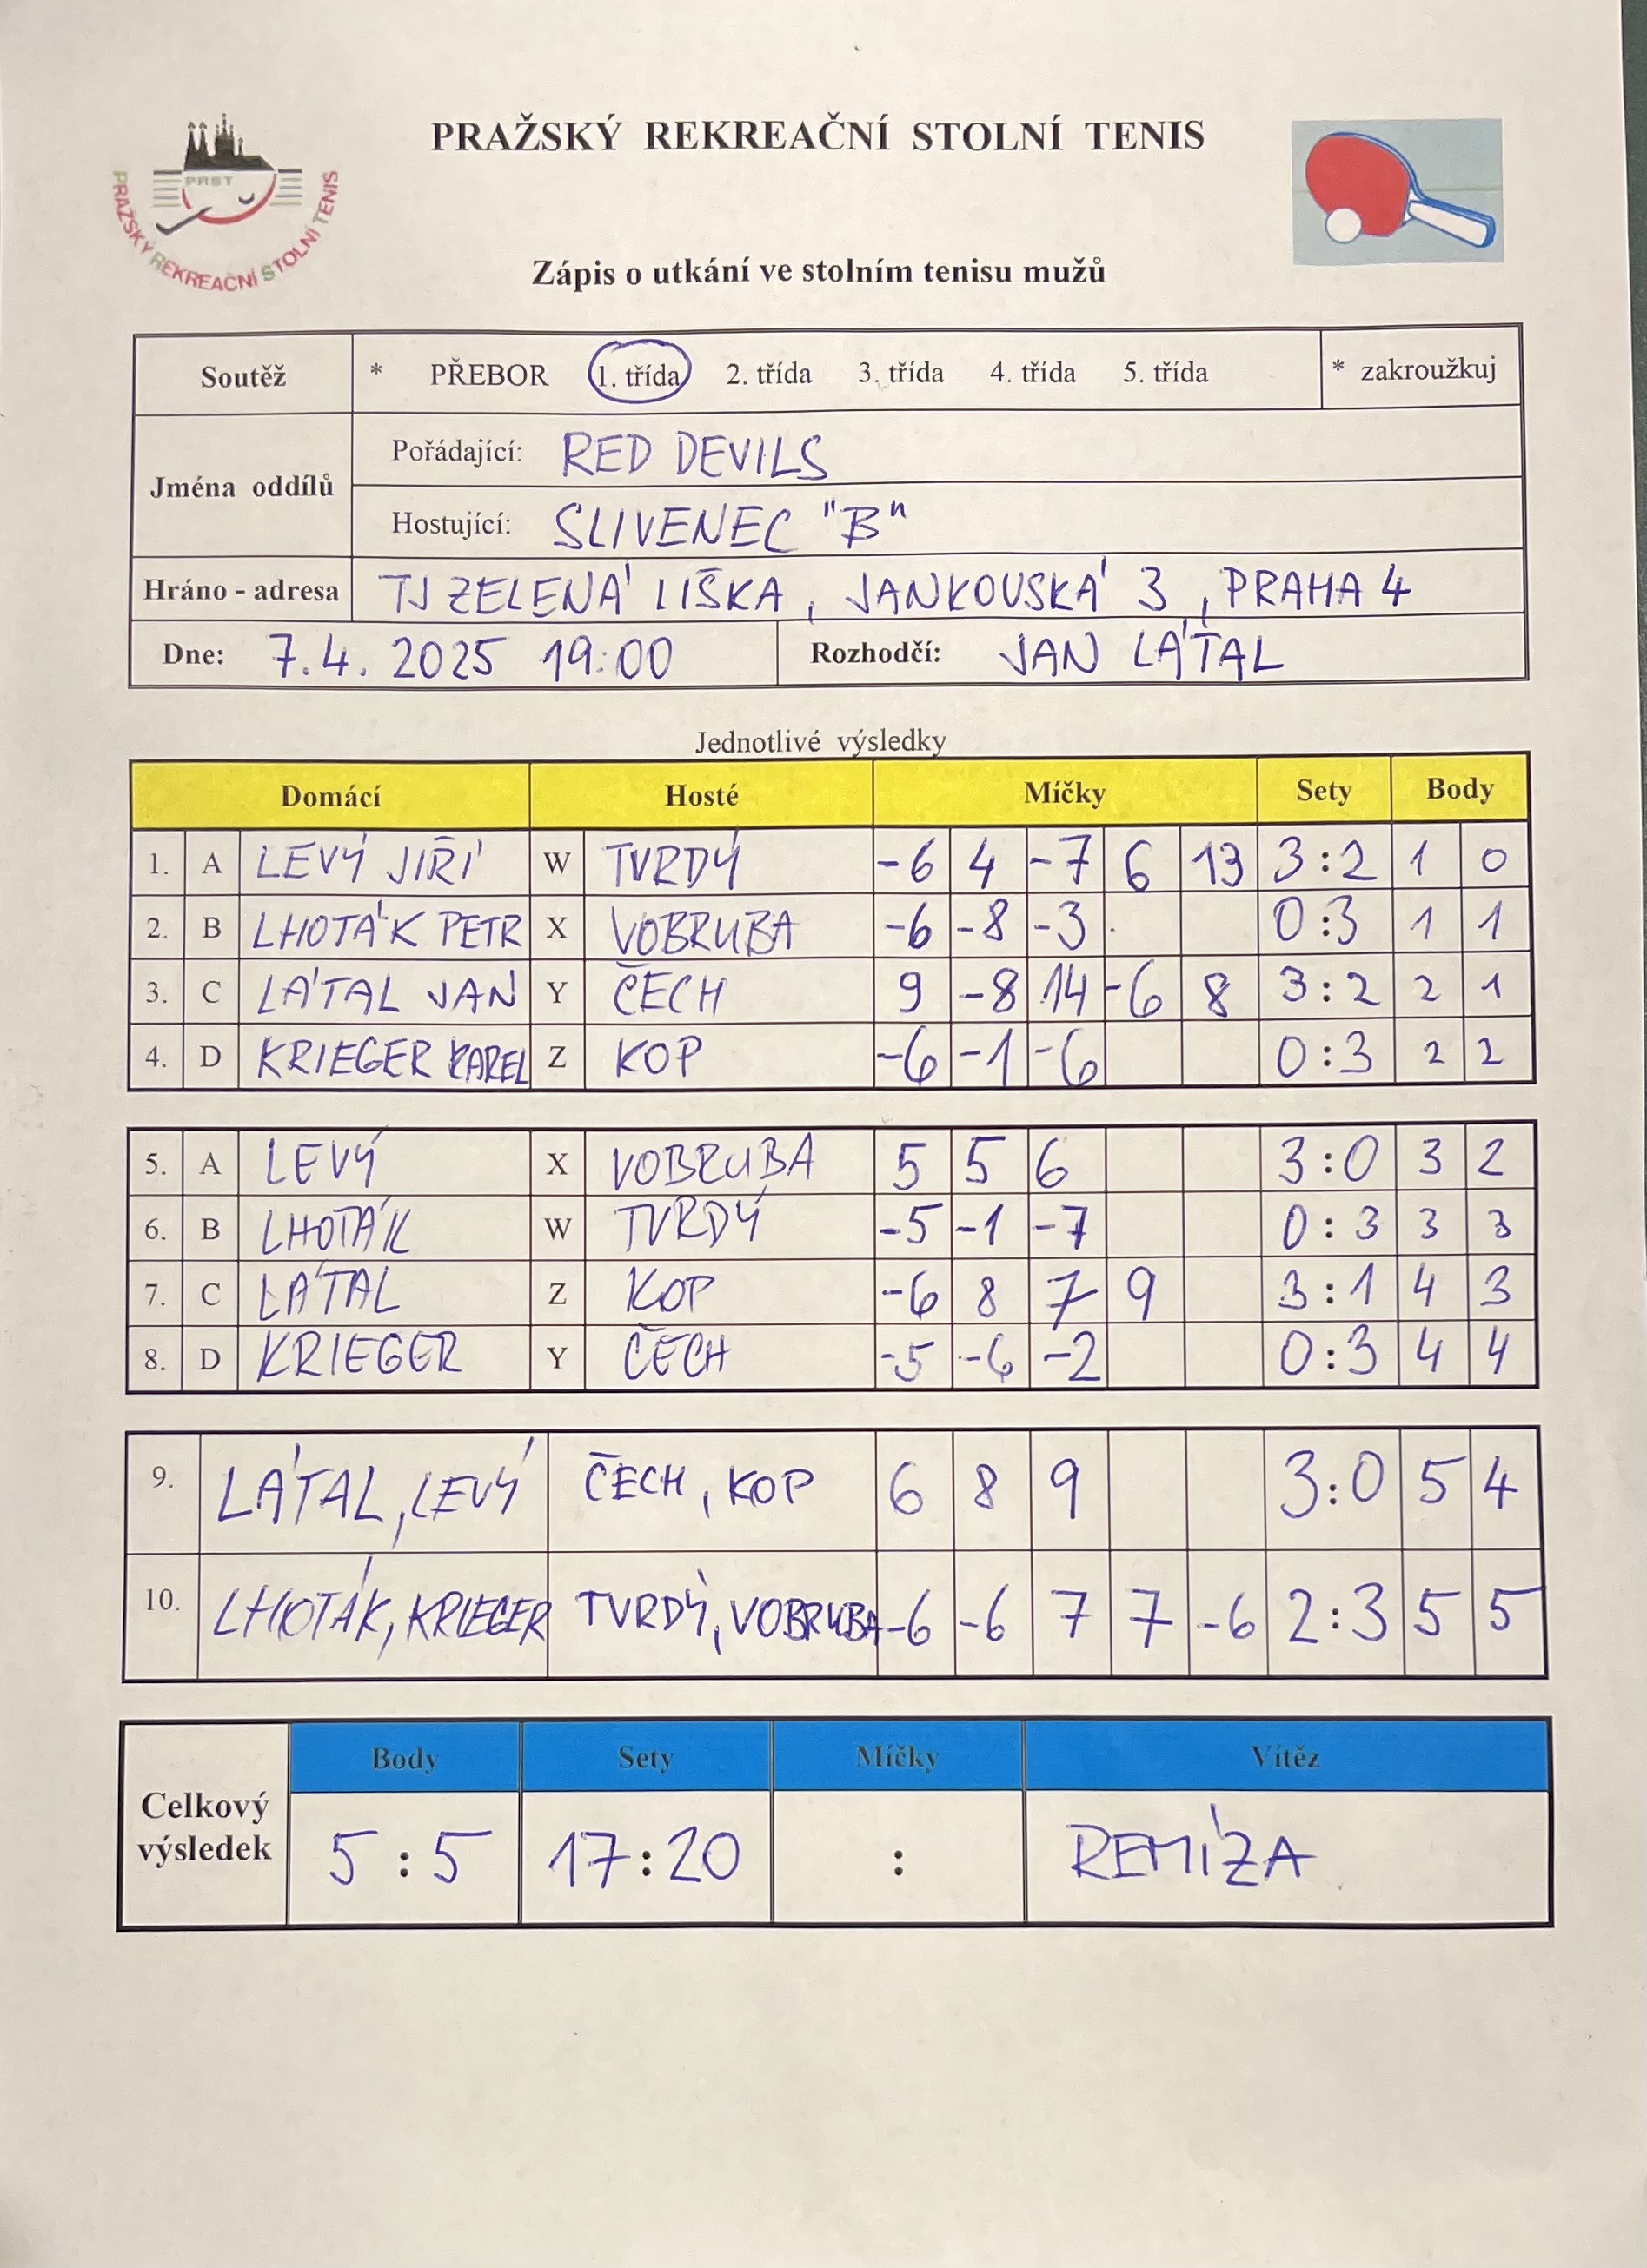 PRAŽSKÝ REKREAČNÍ STOLNÍ TENIS
PRST
PRAŽSKÝ REKREAČNÍ STOLNÍ TENIS
Zápis o utkání ve stolním tenisu mužů
Soutěž * PŘEBOR 1. třída 2. třída 3. třída 4. třída 5. třída * zakroužkuj
Jména oddílů
Pořádající: RED DEVILS
Hostující: SLIVENEC "B"
Hráno - adresa TJ ZELENÁ LIŠKA, JANKOVSKÁ 3, PRAHA 4
Dne: 7.4. 2025 19:00 Rozhodčí: JAN LÁTAL
Jednotlivé výsledky
Domácí Hosté Míčky Sety Body
1. A LEVÝ JIŘÍ W TVRDÝ -6 4 -7 6 13 3:2 1 0
2. B LHOTÁK PETR X VOBRUBA -6 -8 -3 0:3 1 1
3. C LÁTAL JAN Y ČECH 9 -8 14 -6 8 3:2 2 1
4. D KRIEGER KAREL Z KOP -6 -1 -6 0:3 2 2
5. A LEVÝ X VOBRUBA 5 5 6 3:0 3 2
6. B LHOTÁK W TVRDÝ -5 -1 -7 0:3 3 3
7. C LÁTAL Z KOP -6 8 7 9 3:1 4 3
8. D KRIEGER Y ČECH -5 -6 -2 0:3 4 4
9. LÁTAL, LEVÝ ČECH, KOP 6 8 9 3:0 5 4
10. LHOTÁK, KRIEGER TVRDÝ, VOBRUBA -6 -6 7 7 -6 2:3 5 5
Body Sety Míčky Vítěz
Celkový výsledek 5:5 17:20 : REMÍZA